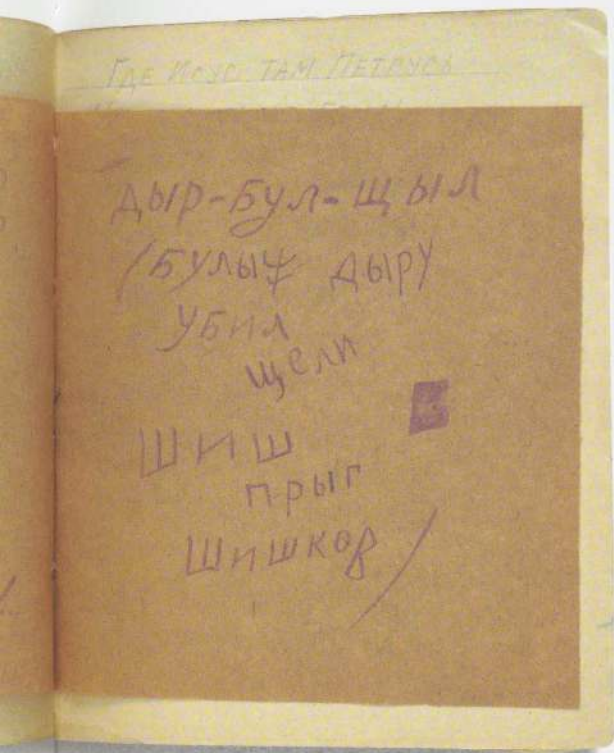 Где Исус там Петрусь
Дыр-бул-щыл
(Булыж дыру
убил
щели
Шиш
прыг
Шишков)